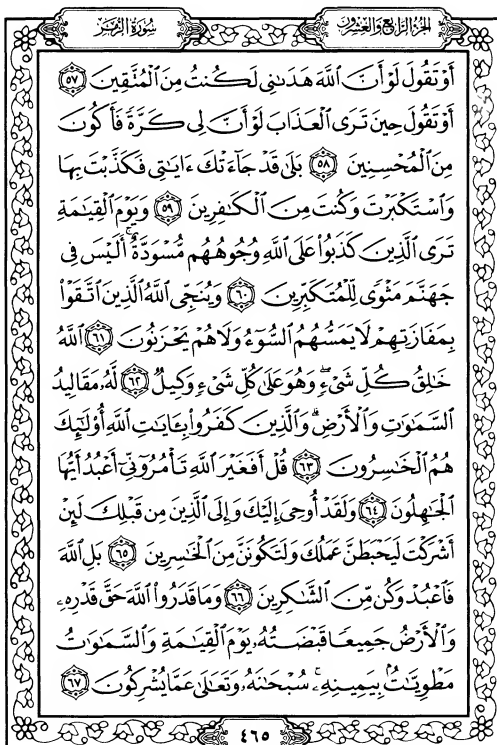 الجزء الرابع والعشرون
سورة الزمر
أَوْ تَقُولَ لَوْ أَنَّ ٱللَّهَ هَدَىٰنِى لَكُنتُ مِنَ ٱلْمُتَّقِينَ ۝٥٧
أَوْ تَقُولَ حِينَ تَرَى ٱلْعَذَابَ لَوْ أَنَّ لِى كَرَّةً فَأَكُونَ
مِنَ ٱلْمُحْسِنِينَ ۝٥٨ بَلَىٰ قَدْ جَآءَتْكَ ءَايَٰتِى فَكَذَّبْتَ بِهَا
وَٱسْتَكْبَرْتَ وَكُنتَ مِنَ ٱلْكَٰفِرِينَ ۝٥٩ وَيَوْمَ ٱلْقِيَٰمَةِ
تَرَى ٱلَّذِينَ كَذَبُوا۟ عَلَى ٱللَّهِ وُجُوهُهُم مُّسْوَدَّةٌ ۚ أَلَيْسَ فِى
جَهَنَّمَ مَثْوًى لِّلْمُتَكَبِّرِينَ ۝٦٠ وَيُنَجِّى ٱللَّهُ ٱلَّذِينَ ٱتَّقَوْا۟
بِمَفَازَتِهِمْ لَا يَمَسُّهُمُ ٱلسُّوٓءُ وَلَا هُمْ يَحْزَنُونَ ۝٦١ ٱللَّهُ
خَٰلِقُ كُلِّ شَىْءٍ ۖ وَهُوَ عَلَىٰ كُلِّ شَىْءٍ وَكِيلٌ ۝٦٢ لَّهُۥ مَقَالِيدُ
ٱلسَّمَٰوَٰتِ وَٱلْأَرْضِ ۗ وَٱلَّذِينَ كَفَرُوا۟ بِـَٔايَٰتِ ٱللَّهِ أُو۟لَٰٓئِكَ
هُمُ ٱلْخَٰسِرُونَ ۝٦٣ قُلْ أَفَغَيْرَ ٱللَّهِ تَأْمُرُوٓنِّىٓ أَعْبُدُ أَيُّهَا
ٱلْجَٰهِلُونَ ۝٦٤ وَلَقَدْ أُوحِىَ إِلَيْكَ وَإِلَى ٱلَّذِينَ مِن قَبْلِكَ لَئِنْ
أَشْرَكْتَ لَيَحْبَطَنَّ عَمَلُكَ وَلَتَكُونَنَّ مِنَ ٱلْخَٰسِرِينَ ۝٦٥ بَلِ ٱللَّهَ
فَٱعْبُدْ وَكُن مِّنَ ٱلشَّٰكِرِينَ ۝٦٦ وَمَا قَدَرُوا۟ ٱللَّهَ حَقَّ قَدْرِهِۦ
وَٱلْأَرْضُ جَمِيعًا قَبْضَتُهُۥ يَوْمَ ٱلْقِيَٰمَةِ وَٱلسَّمَٰوَٰتُ
مَطْوِيَّٰتٌۢ بِيَمِينِهِۦ ۚ سُبْحَٰنَهُۥ وَتَعَٰلَىٰ عَمَّا يُشْرِكُونَ ۝٦٧
٤٦٥